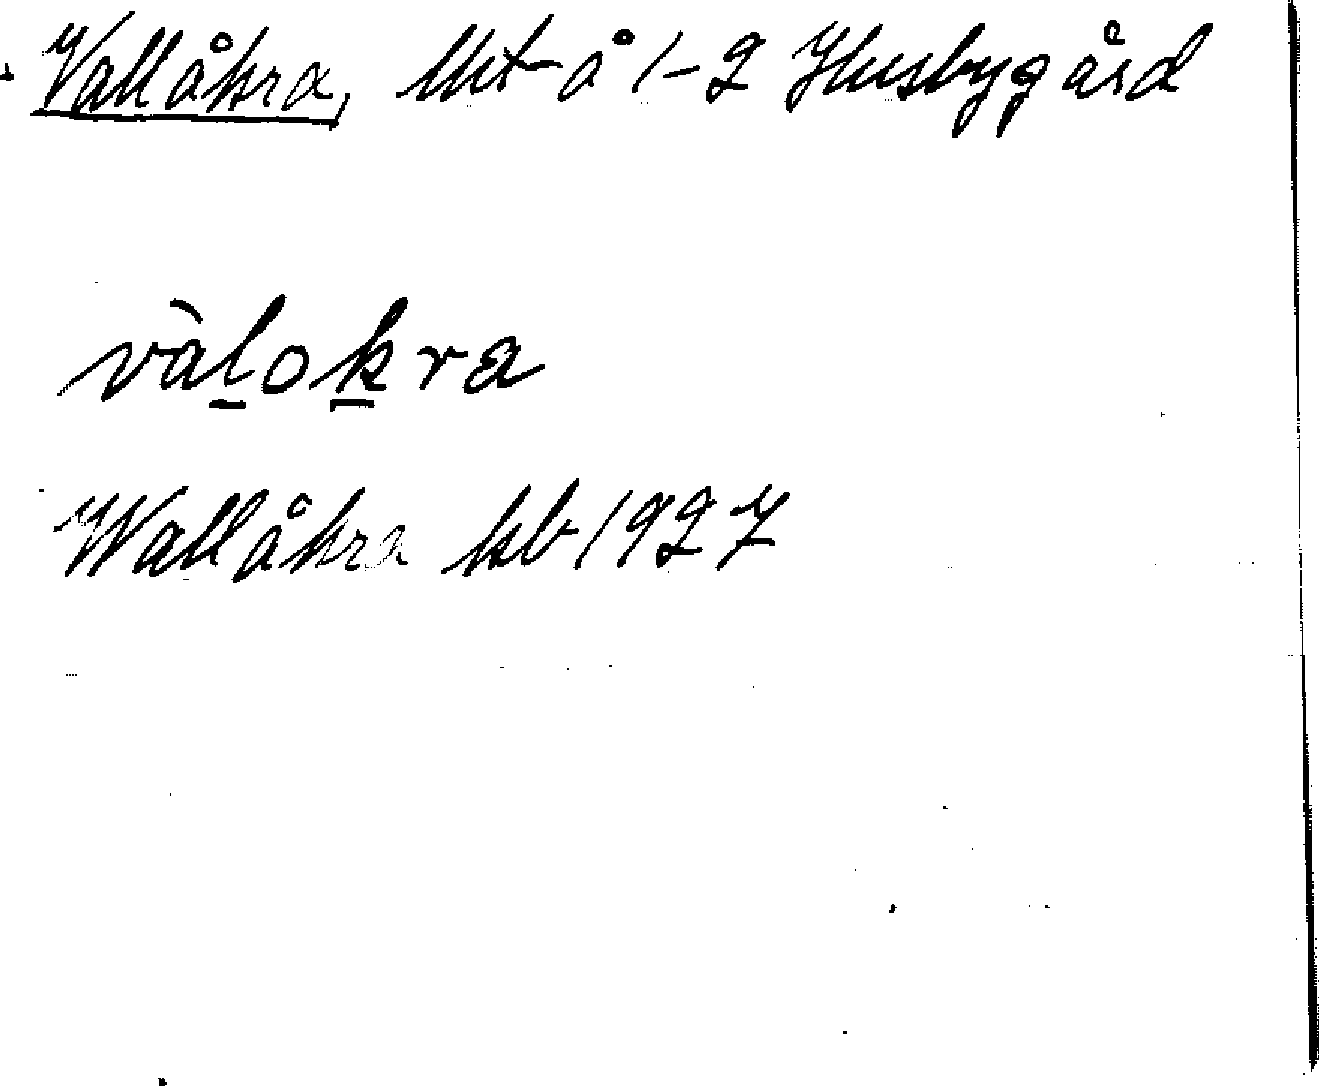 Vallåkra, Utt å 1-2 Husbygård
vàl̲ok̲ra
Wallåkra kb 1927